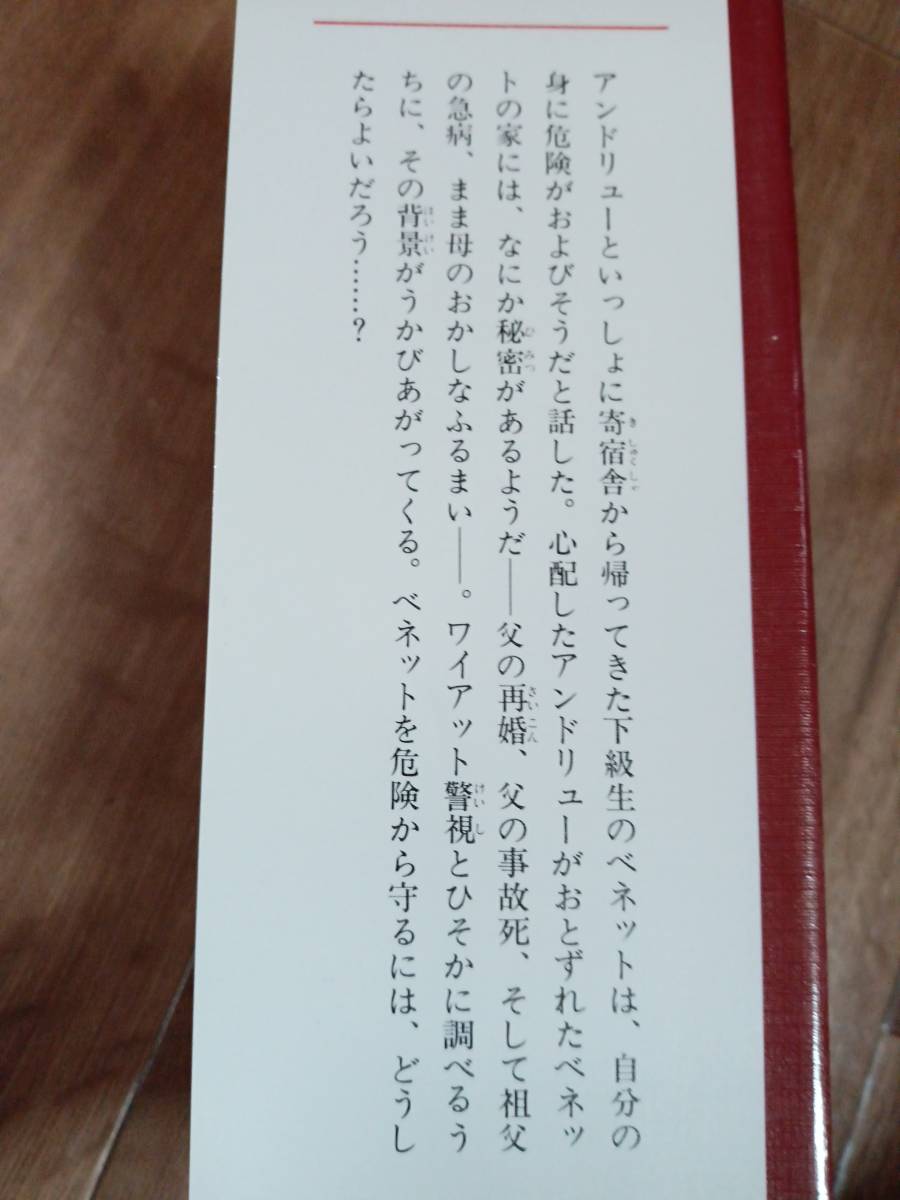 アンドリューといっしょに寄宿舎から帰ってきた下級生のベネットは、自分の
身に危険がおよびそうだと話した。心配したアンドリューがおとずれたベネッ
トの家には、なにか秘密があるようだ——父の再婚、父の事故死、そして祖父
の急病、まま母のおかしなふるまい——。ワイアット警視とひそかに調べるう
ちに、その背景がうかびあがってくる。ベネットを危険から守るには、どうし
たらよいだろう……?